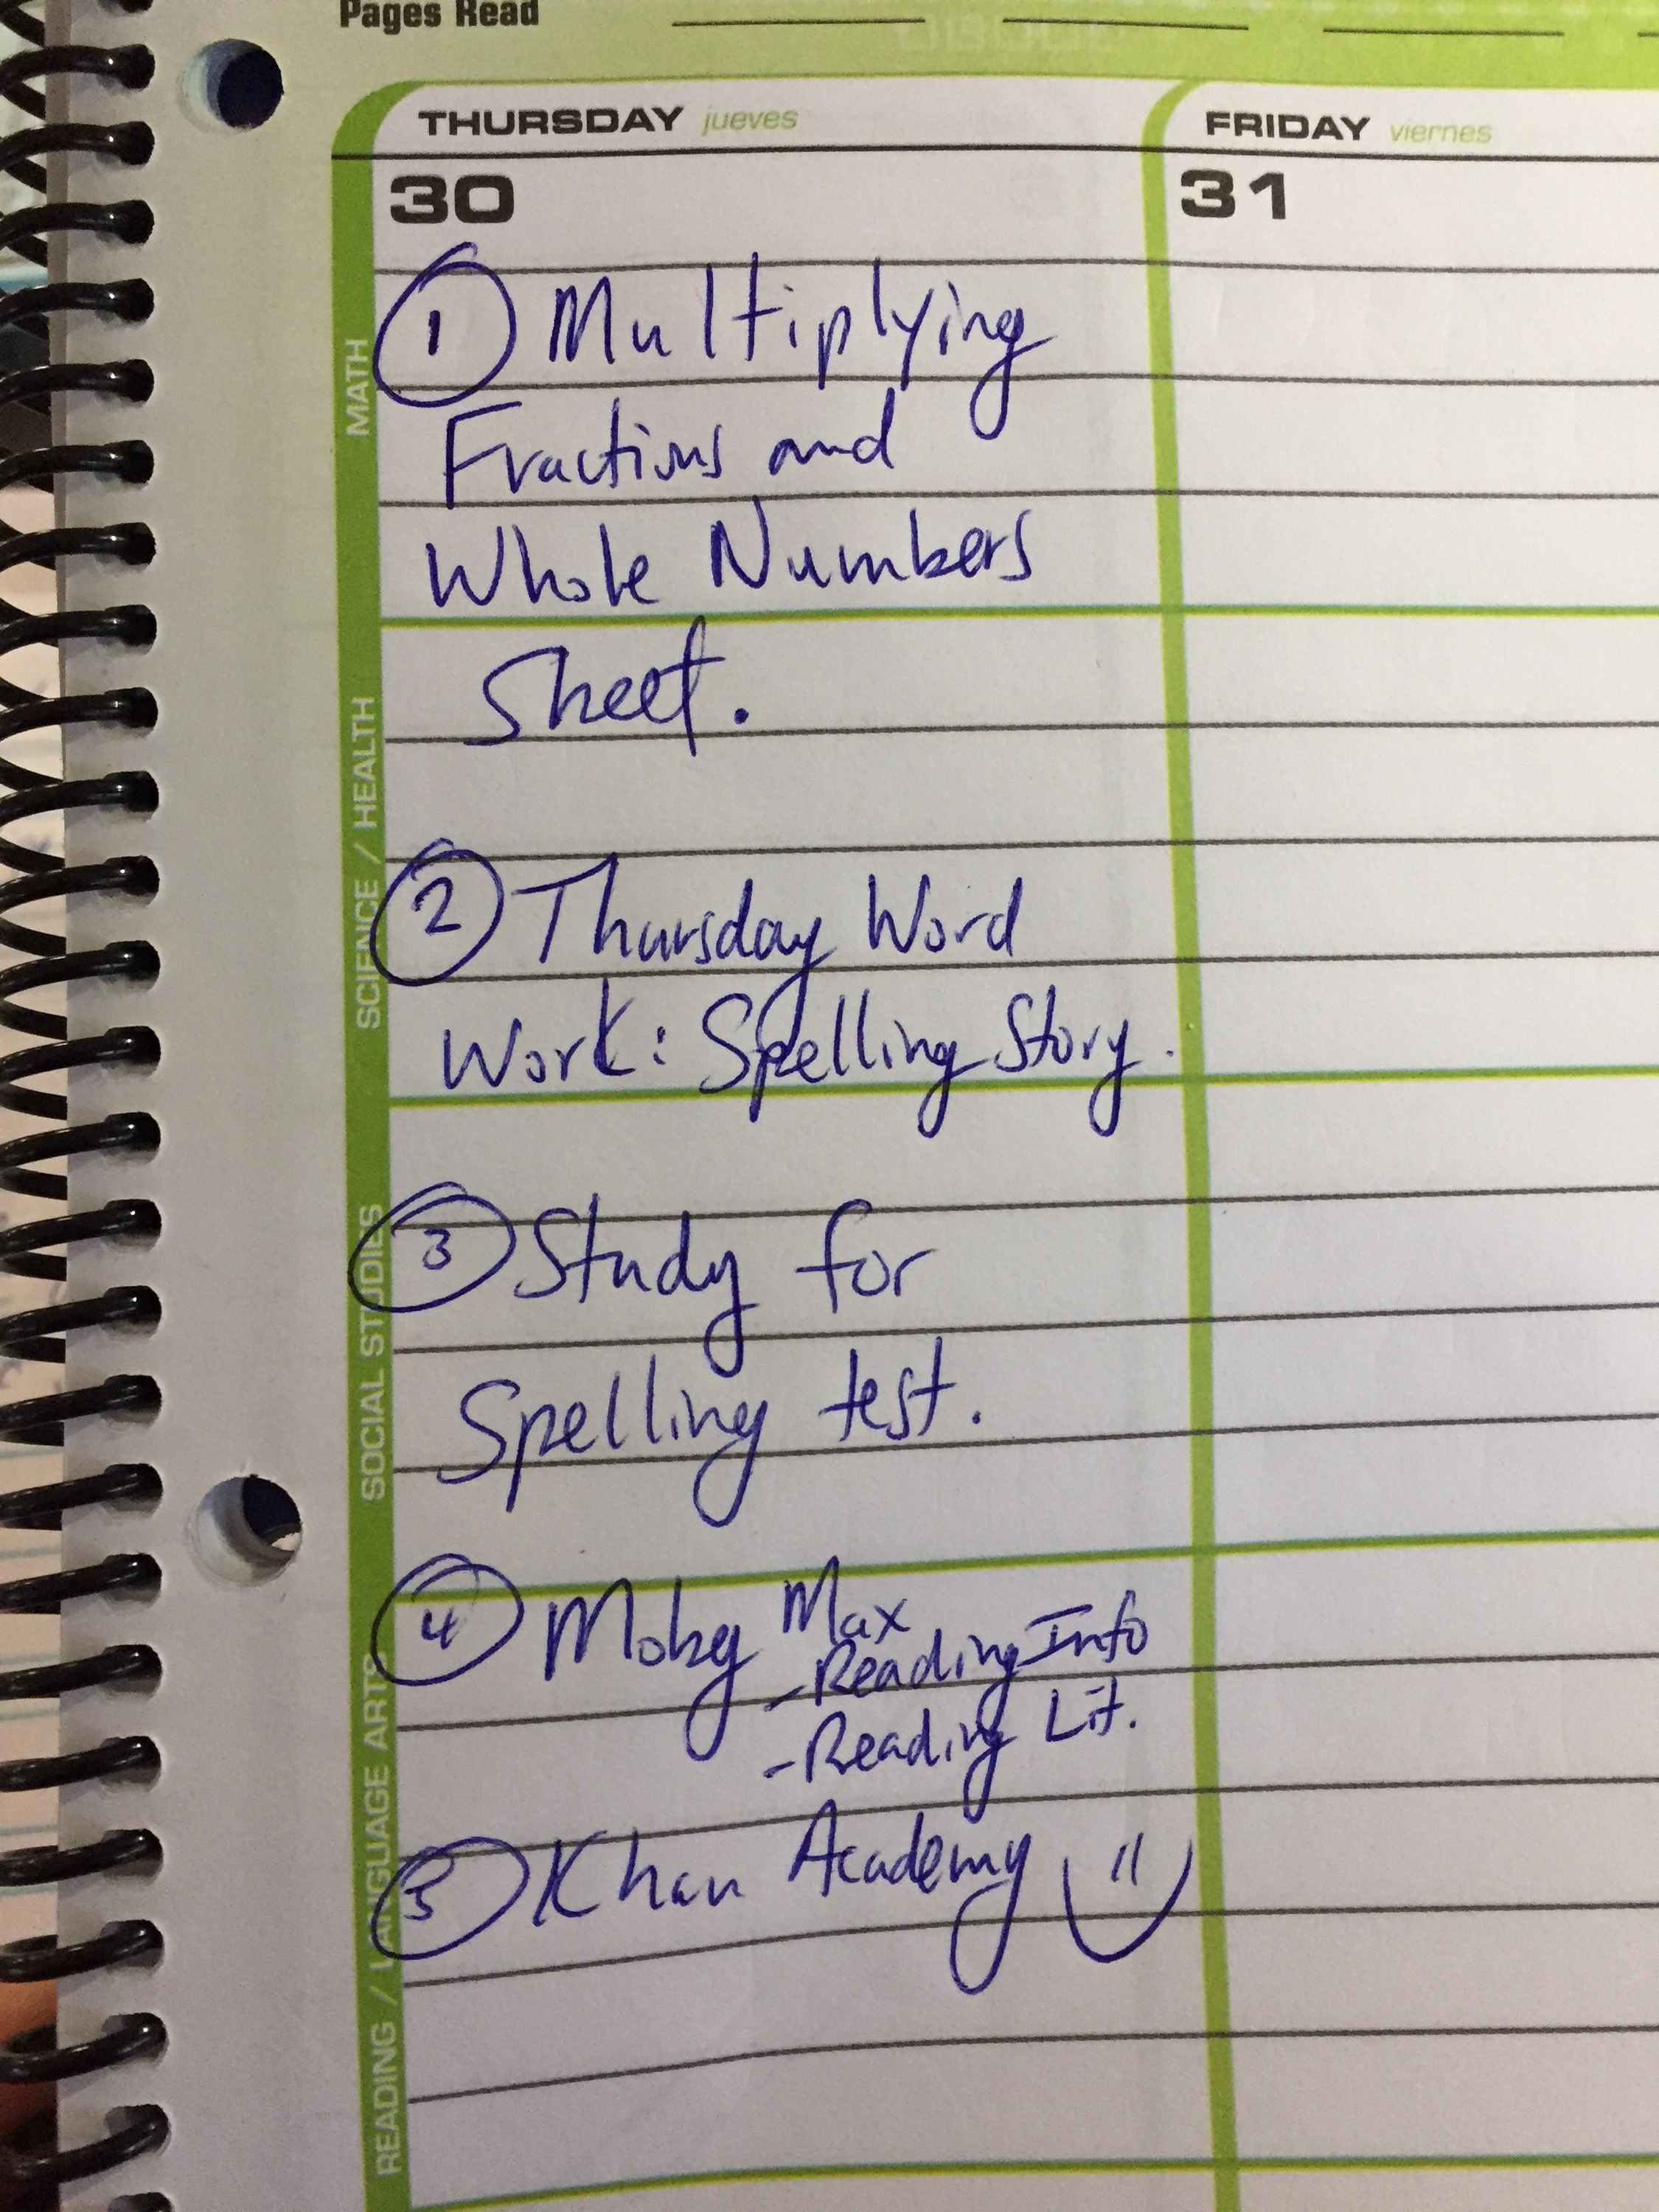 Pages Read
THURSDAY jueves
FRIDAY viernes
30
31
MATH
① Multiplying
Fractions and
Whole Numbers
Sheet.
SCIENCE / HEALTH
② Thursday Word
Work: Spelling Story.
SOCIAL STUDIES
③ Study for
Spelling test.
READING / LANGUAGE ARTS
④ Moby Max
- Reading Info
- Reading Lit.
⑤ Khan Academy